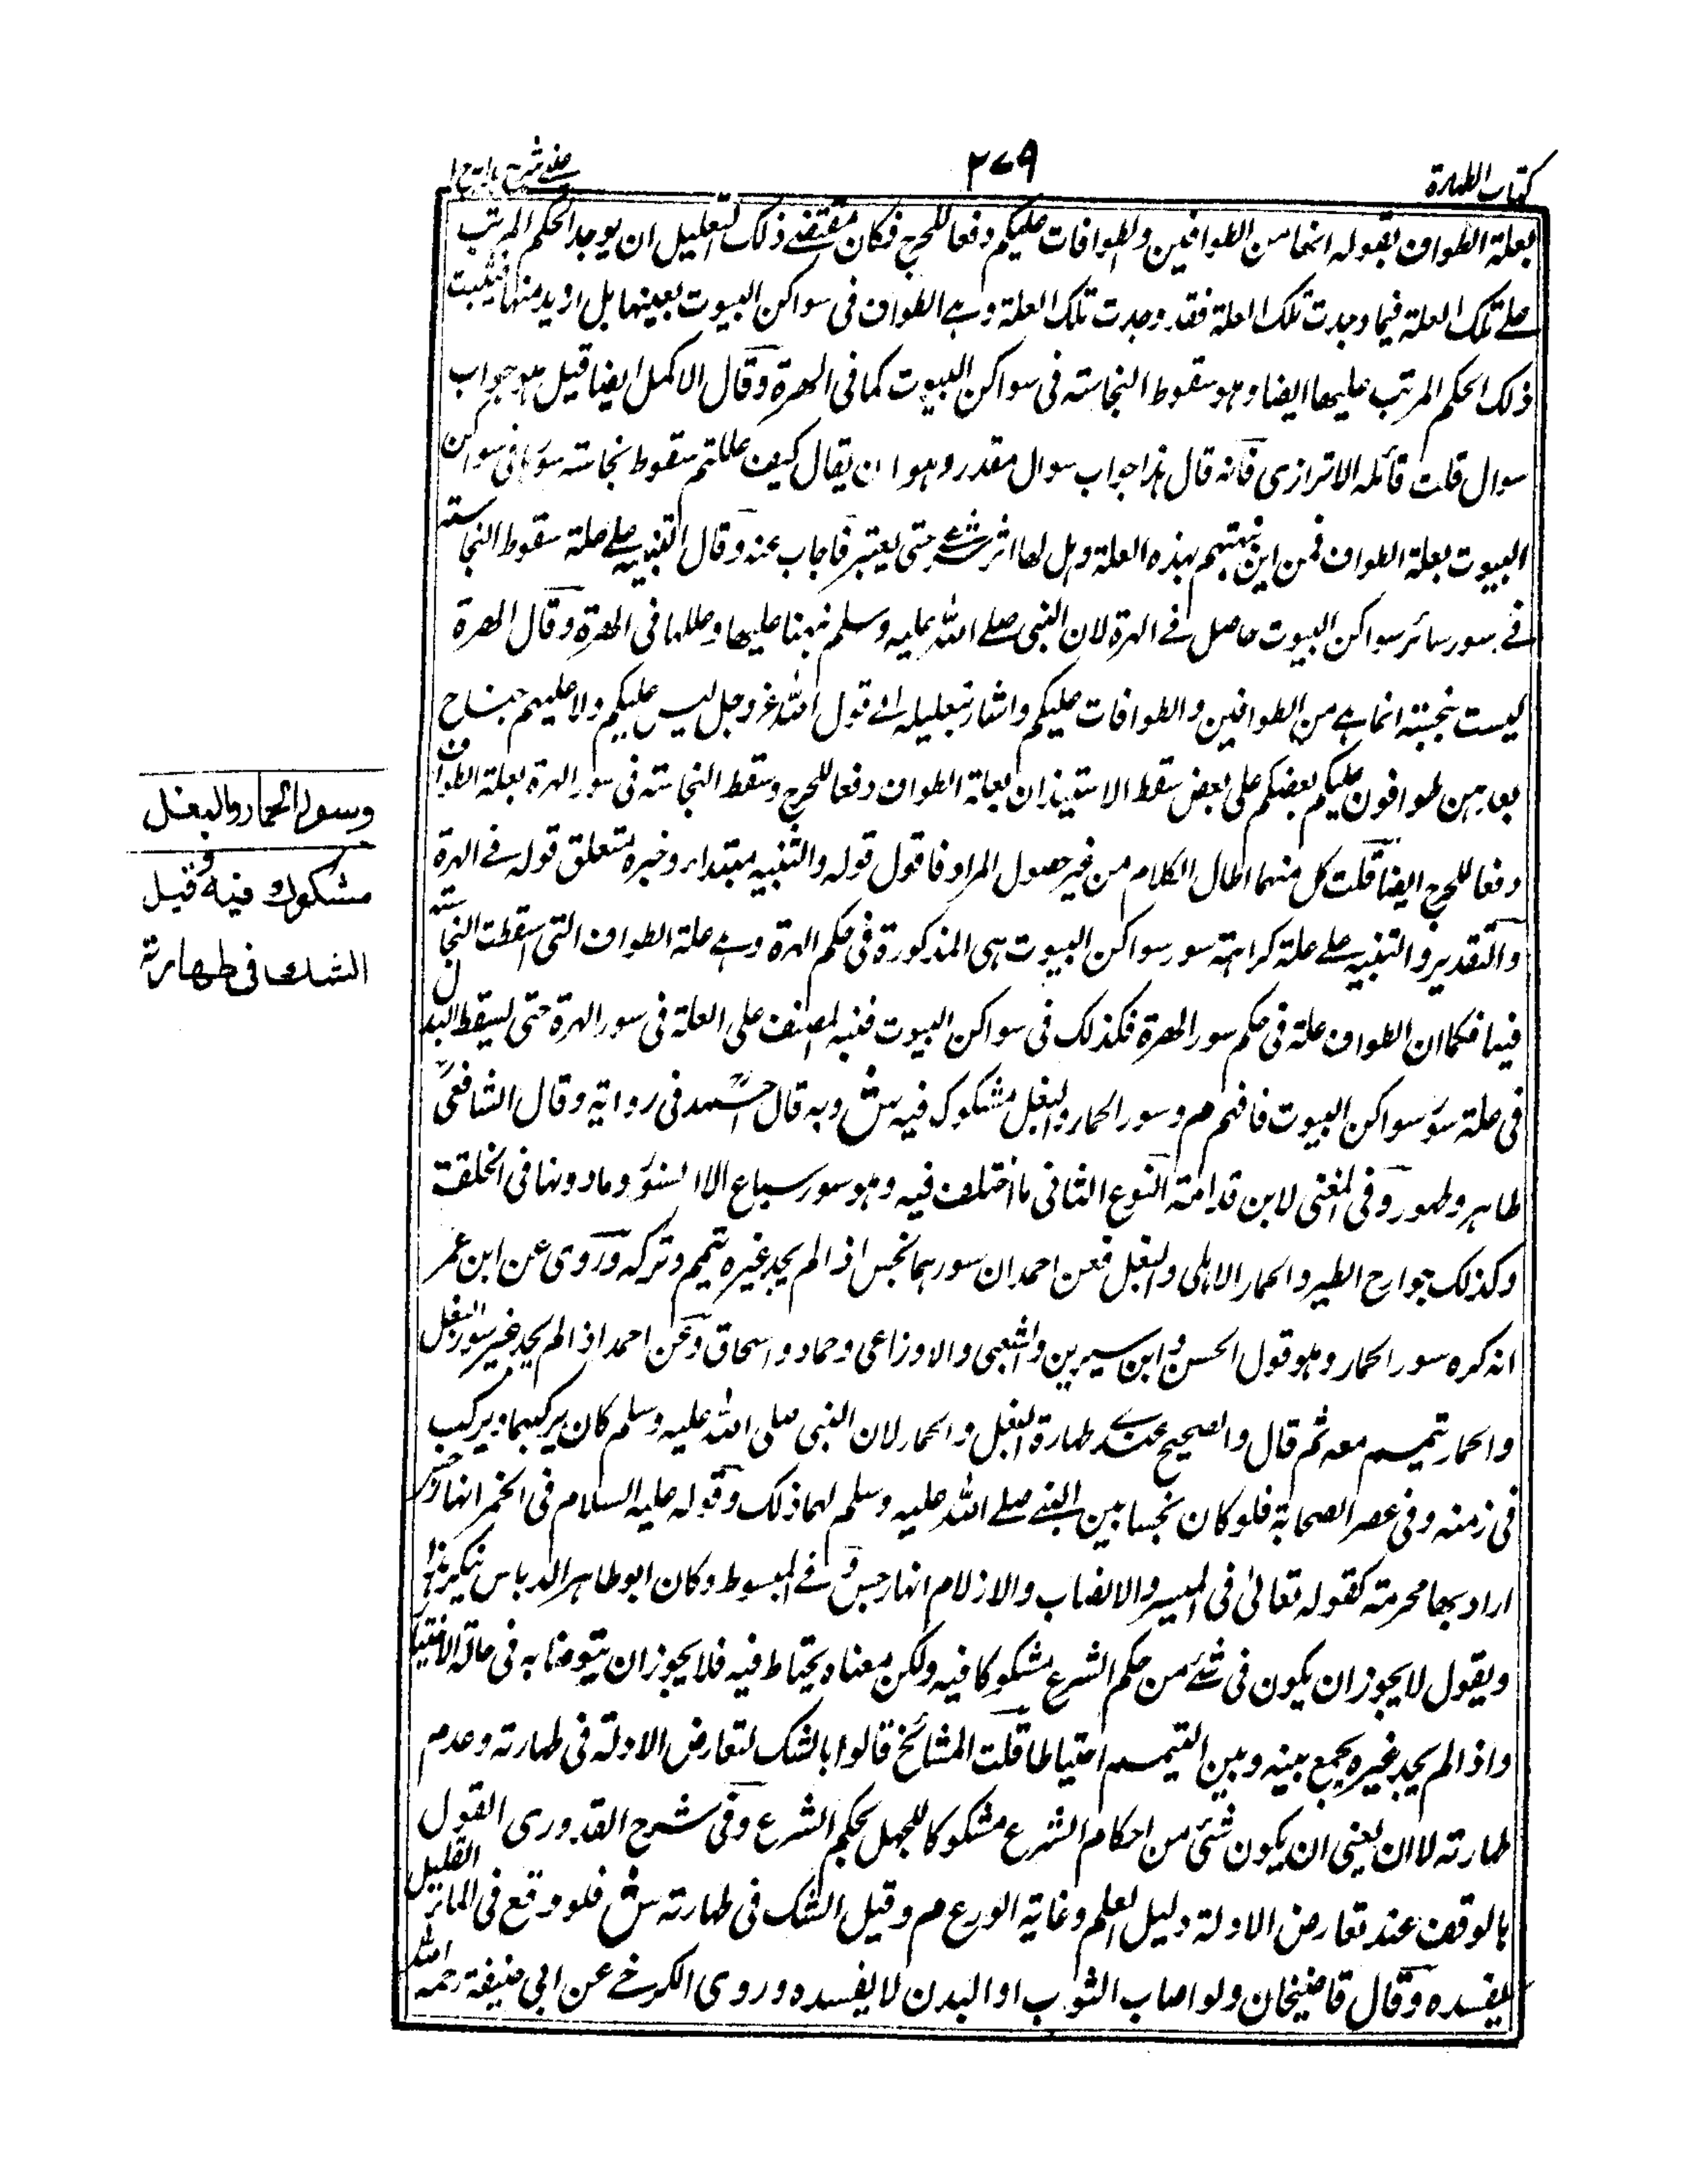 كتاب الطهارة
٢٧٩
عينى شرح هداية ج ١
بعلة الطواف بقوله انها من الطوافين والطوافات عليكم دفعا للحرج فكان مقتضى ذلك التعليل ان يوجد الحكم المرتب
على تلك العلة فيما وجدت تلك العلة فقد وجدت تلك العلة وهى الطواف فى سواكن البيوت بعينها بل ازيد منها فيثبت
ذلك الحكم المرتب عليها ايضا وهو سقوط النجاسته فى سواكن البيوت كما فى الهرة وقال الاكمل ايضا قيل هو جواب
سوال قلت قائله الاترازى فانه قال هذا جواب سوال مقدر وهو ان يقال كيف عللتم سقوط نجاسته سؤر ما فى سواكن
البيوت بعلة الطواف فمن اين نبهتهم بهذه العلة وهل لها اثر شرعى حتى يعتبر فاجاب عنه وقال التنبيه على علة سقوط النجاسته
فى سور سائر سواكن البيوت حاصل فى الهرة لان النبى صلى الله عليه وسلم نبهنا عليها وعللها فى الهرة وقال الهرة
ليست بنجسة انما هى من الطوافين والطوافات عليكم واشار بتعليله الى قول الله عز وجل ليس عليكم ولا عليهم جناح
بعدهن طوافون عليكم بعضكم على بعض سقط الاستيذان بعلة الطواف دفعا للحرج وسقط النجاسته فى سؤر الهرة بعلة الطواف
دفعا للحرج ايضا قلت كل منهما اطال الكلام من غير حصول المراد فاقول قوله والتنبيه مبتداء وخبره متعلق قوله فى الهرة
والتقدير والتنبيه على علة كراهته سور سواكن البيوت هى المذكورة فى حكم الهرة وهى علة الطواف التى اسقطت النجاسته
فيها فكما ان الطواف علة فى حكم سور الهرة فكذلك فى سواكن البيوت فنبه المصنف على العلة فى سور الهرة حتى ليسقط البدل
فى علة سؤر سواكن البيوت فافهم م وسور الحمار والبغل مشكوك فيه ش وبه قال احمد فى رواية وقال الشافعى
طاهر وطهور وفى المغنى لابن قدامة النوع الثانى ما اختلف فيه وهو سور سباع الا السنور وما دونها فى الخلقة
وكذلك جوارح الطير والحمار الاهلى والبغل فعن احمد ان سورهما نجس اذ الم يجد غيره تيمم وتركه وروى عن ابن عمر
انه كره سور الحمار وهو قول الحسن وابن سيرين والشعبى والاوزاعى وحماد واسحاق وعن احمد اذ الم يجد غير سور البغل
والحمار تيمم معه ثم قال والصحيح عندى طهارة البغل والحمار لان النبى صلى الله عليه وسلم كان يركبهما ويركب
فى زمنه وفى عصر الصحابة فلو كان نجسا بين النبى صلى الله عليه وسلم لهما ذلك وقوله عليه السلام فى الخمر انها رجس
اراد بها محرمته كقوله تعالى فى الميسر والانصاب والازلام انها رجس وفى المبسوط وكان ابو طاهر الدباس ينكر هذا
ويقول لا يجوز ان يكون فى شئ من حكم الشرع مشكوكا فيه ولكن معناه يحتاط فيه فلا يجوز ان يتوضا به فى حالة الاختيار
واذ الم يجد غيره يجمع بينه وبين التيمم احتياطا قلت المشائخ قالوا بالشك لتعارض الادلة فى طهارته وعدم
طهارته لا ان يعنى ان يكون شئ من احكام الشرع مشكوكا للجهل بحكم الشرع وفى شرح القدورى القول
بالوقف عند تعارض الادلة دليل العلم وغاية الورع م وقيل الشك فى طهارته ش فلو وقع فى الماء القليل
يفسده وقال قاضيخان ولو اصاب الثوب او البدن لا يفسده وروى الكرخى عن ابى حنيفة رحمه الله
وسور الحمار والبغل
مشكوك فيه وقيل
الشك فى طهارته